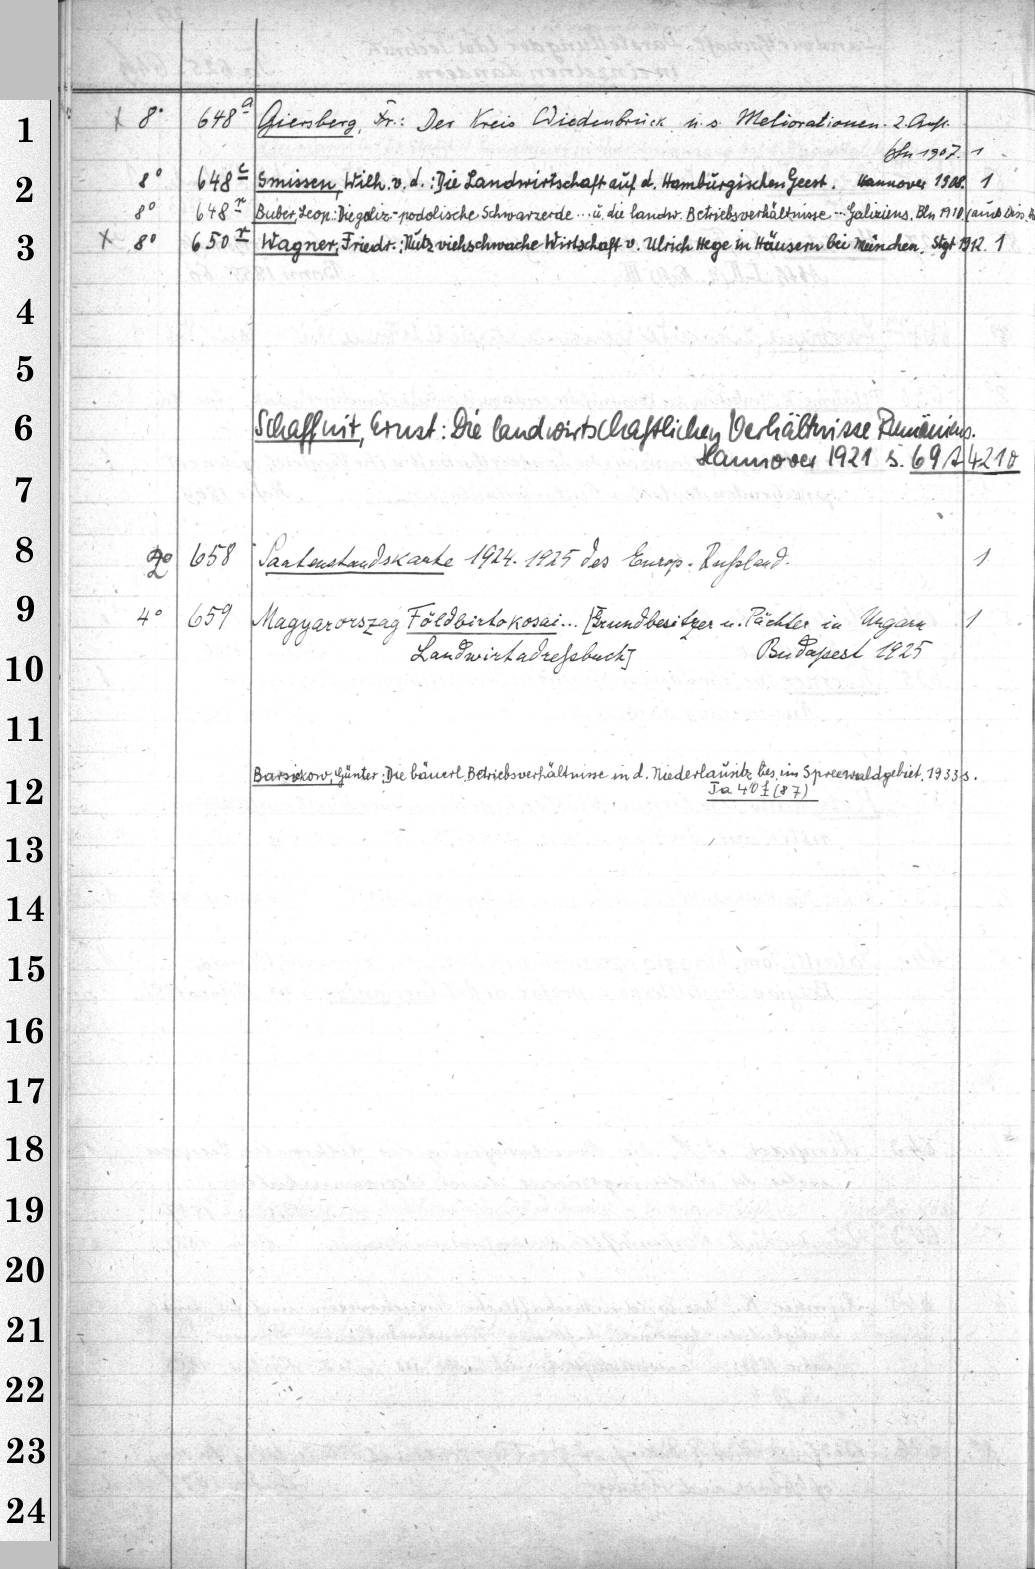 1
x 8° 648a Giersberg, Fr.: Der Kreis Wiedenbrück u. s. Meliorationen. 2. Aufl.
Bln 1907. 1
2
8° 648c Smissen, Wilh. v. d.: Die Landwirtschaft auf d. Hamburgischen Geest. Hannover 1908. 1
8° 648r Buber, Leop: Die galiz-podolische Schwarzerde... u. die landw. Betriebsverhältnisse... Galiziens. Bln 1910. (aus Diss.
3
x 8° 650r Wagner, Friedr.: Nutzviehschwache Wirtschaft v. Ulrich Hege in Häusern bei München. Stgt 1912. 1
4
5
6
Schaffnit, Ernst: Die landwirtschaftlichen Verhältnisse Rumäniens.
Hannover 1921 s. 69 A 4210
7
8
2° 658 Saatenstandskarte 1924-1925 des Europ. Rußland. 1
9
4° 659 Magyarorszag Földbirtokosai... [Grundbesitzer u. Pächter in Ungarn 1
10
Landwirtadreßbuch] Budapest 1925
11
12
Barsickow, Günter: Die bäuerl. Betriebsverhältnisse in d. Niederlausitz bes. im Spreewaldgebiet. 1933 s.
Ja 40 f (87)
13
14
15
16
17
18
19
20
21
22
23
24